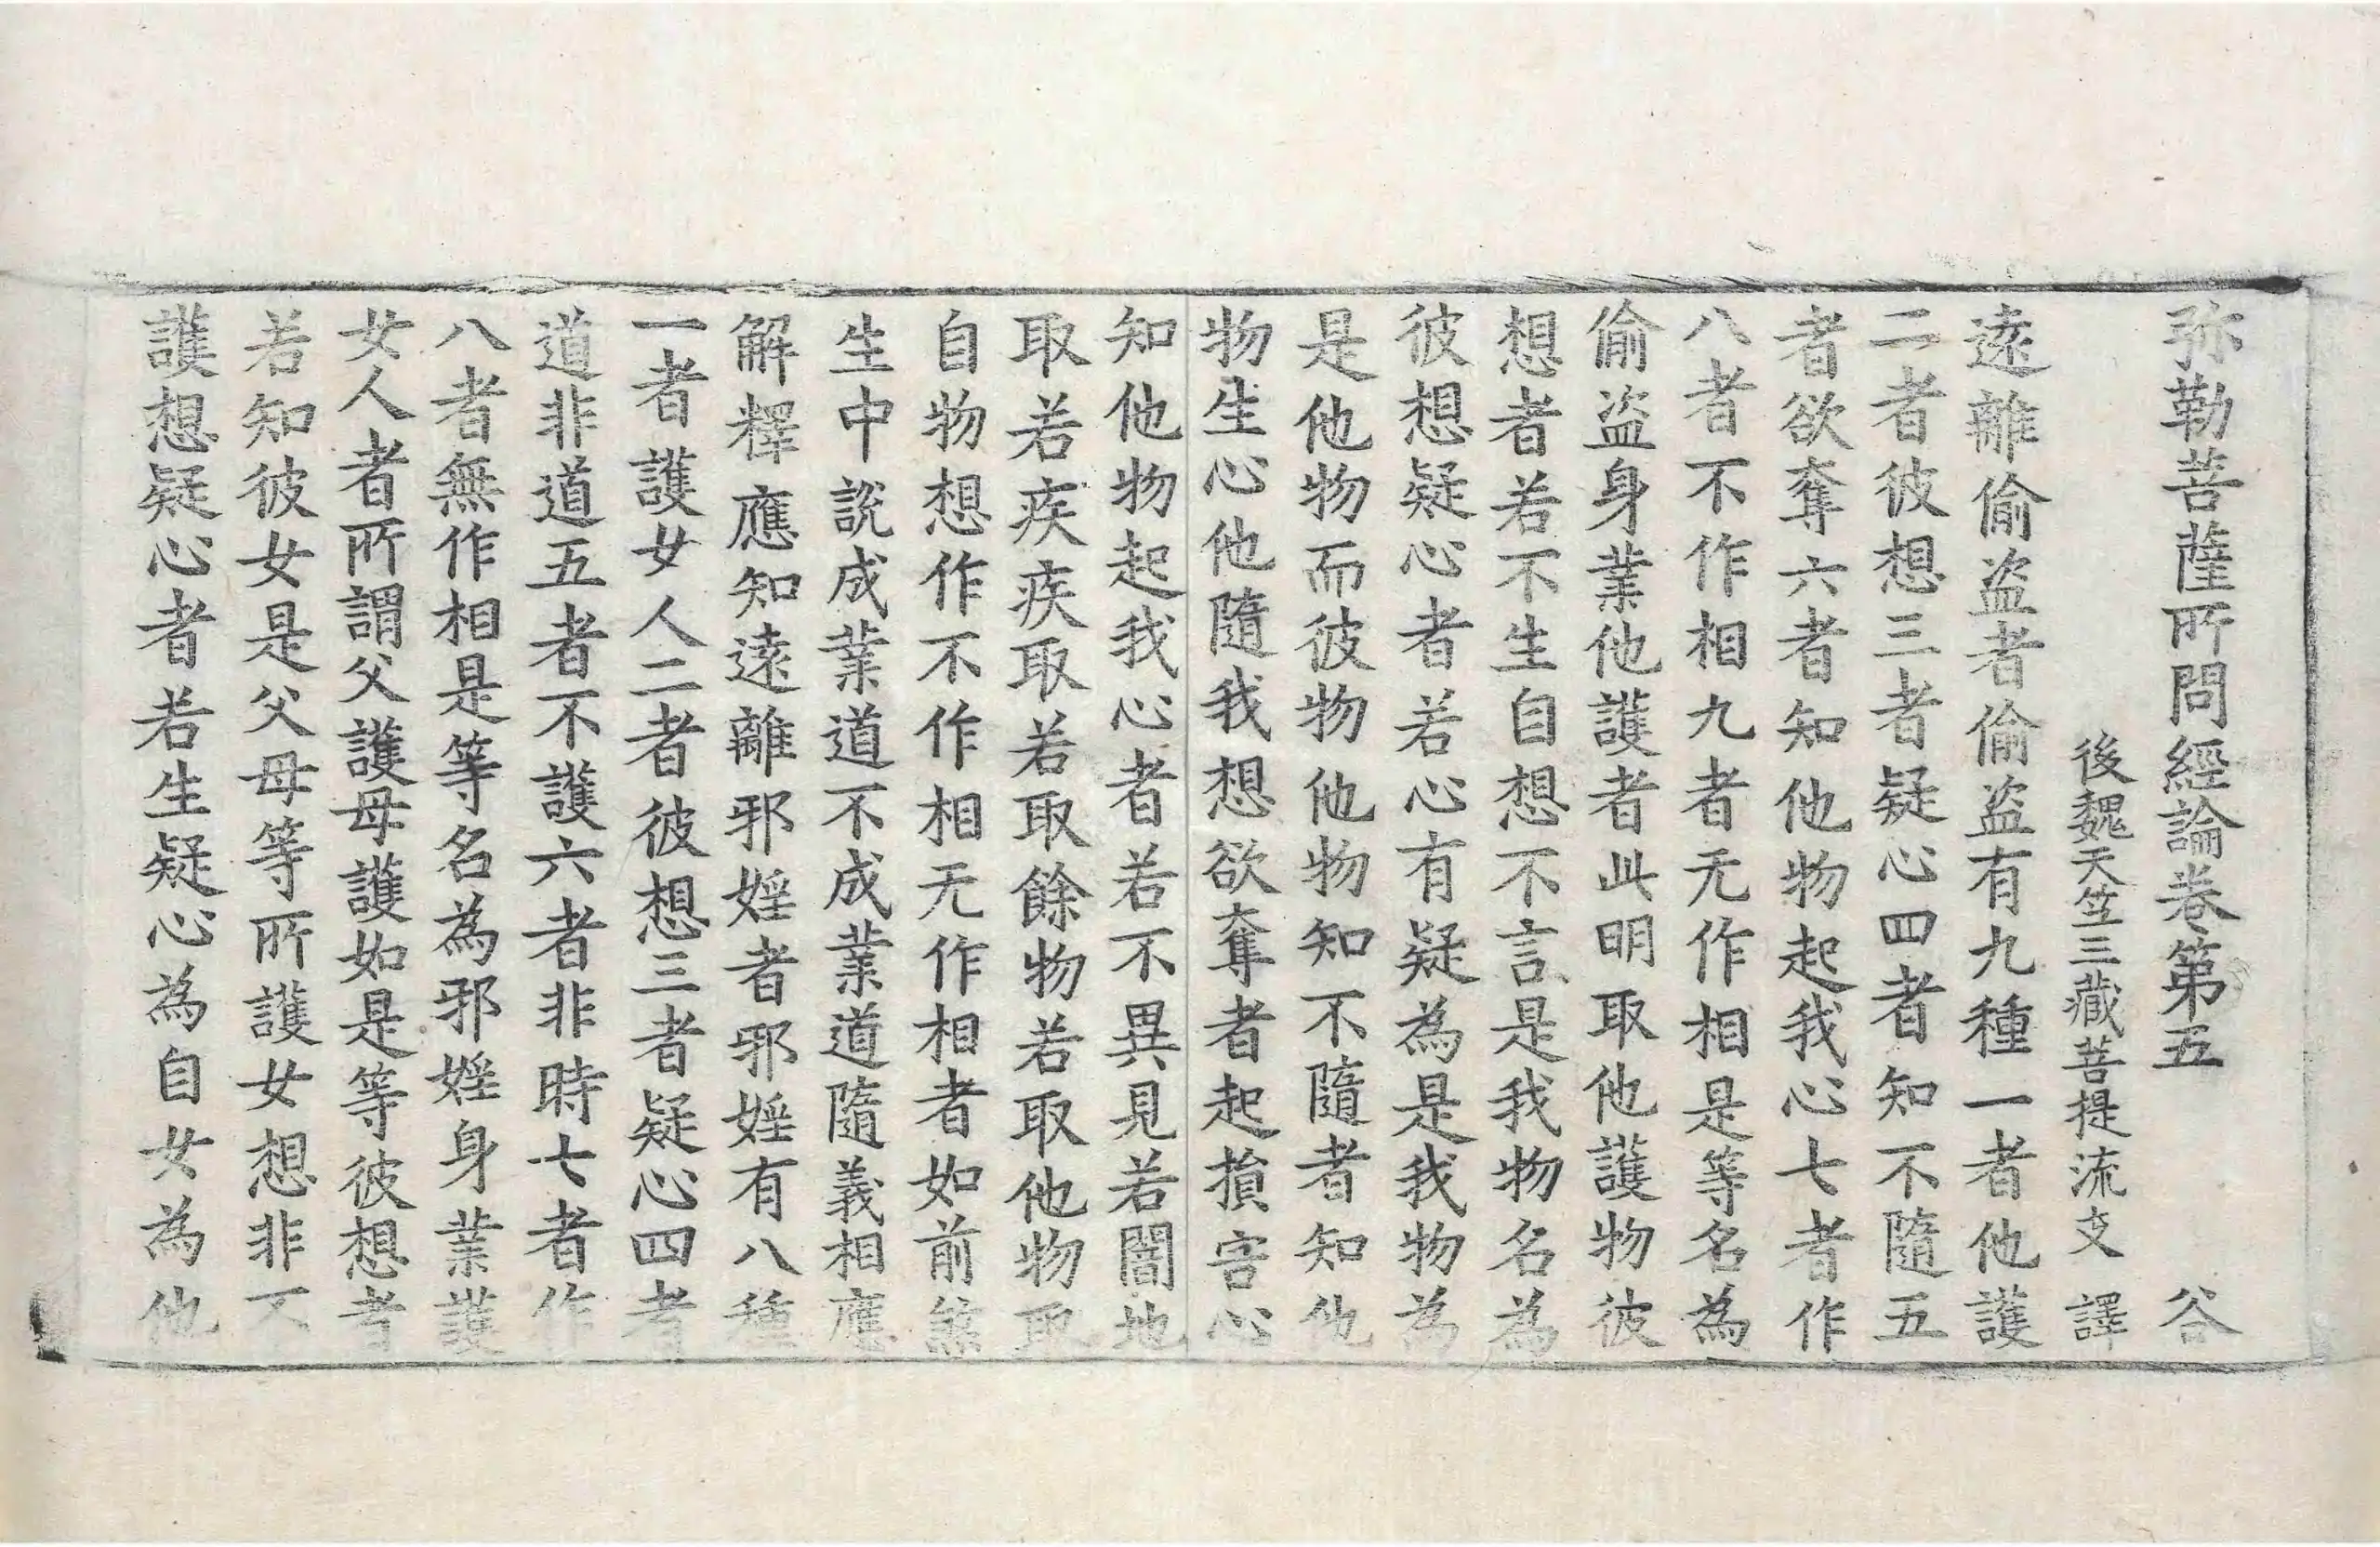 弥勒菩薩所問經論卷第五　谷
後魏天竺三藏菩提流支　譯
遠離偷盗者偷盗有九種一者他護
二者彼想三者疑心四者知不隨五
者欲奪六者知他物起我心七者作
八者不作相九者无作相是等名為
偷盗身業他護者此明取他護物彼
想者若不生自想不言是我物名為
彼想疑心者若心有疑為是我物為
是他物而彼物他物知不隨者知他
物生心他隨我想欲奪者起損害心
知他物起我心者若不異見若闇地
取若疾疾取若取餘物若取他物取
自物想作不作相无作相者如前煞
生中說成業道不成業道隨義相應
解釋應知遠離邪婬者邪婬有八種
一者護女人二者彼想三者疑心四者
道非道五者不護六者非時七者作
八者無作相是等名為邪婬身業護
女人者所謂父護母護如是等彼想者
若知彼女是父母等所護女想非不
護想疑心者若生疑心為自女為他